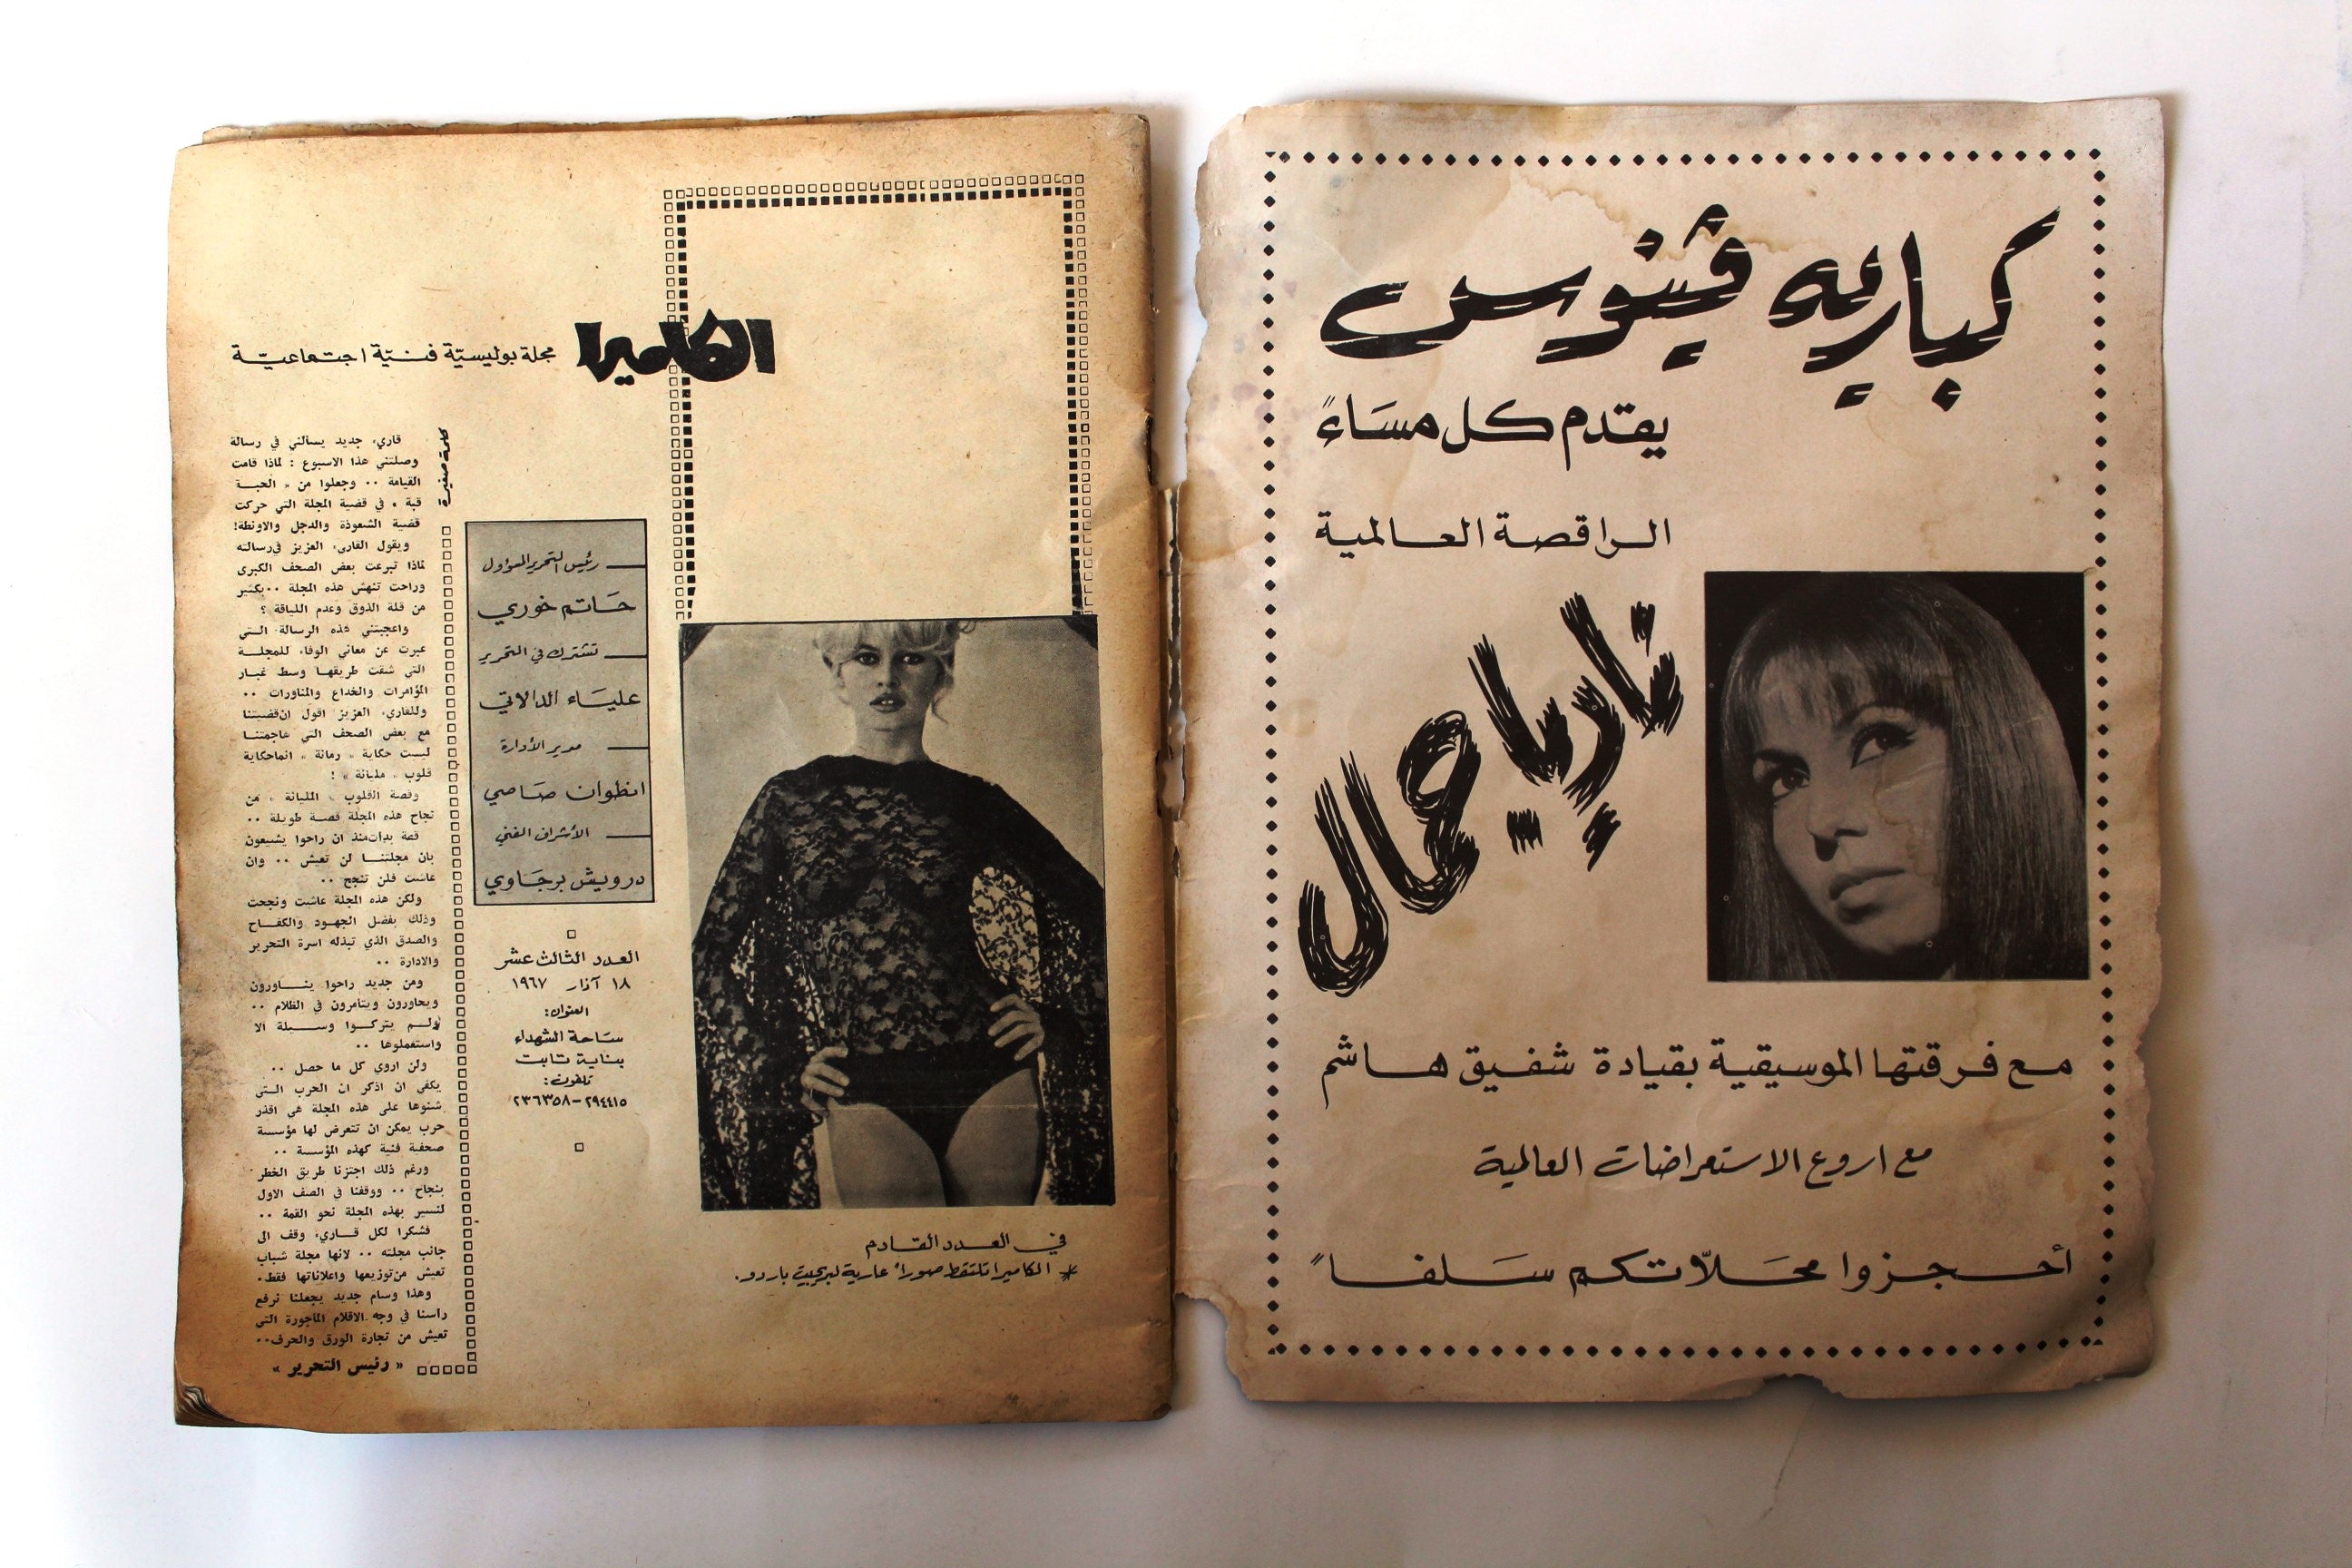 كباريه ڤينوس
يقدم كل مساءً
الراقصة العالمية
ناريا جمال
مع فرقتها الموسيقية بقيادة شفيق هاشم
مع اروع الاستعراضات العالمية
أحجزوا محلاّتكم سلفاً
الكاميرا
مجلة بوليسيّة فنيّة اجتماعيّة
في العدد القادم
* الكاميرا تلتقط صوراً عارية لبريجيت باردو.
رئيس التحرير المسؤول
حاتم خوري
تشترك في التحرير
علياء الدالاتي
مدير الأدارة
انطوان صاصي
الأشراف الفني
درويش برجاوي
العدد الثالث عشر
١٨ آذار ١٩٦٧
العنوان:
ساحة الشهداء
بناية تابت
تلفون:
٢٩٤٤١٥-٢٣٦٣٥٨
كلمة صغيرة
قارىء جديد يسألني في رسالة
وصلتني هذا الاسبوع : لماذا قامت
القيامة .. وجعلوا من « الحبة
قبة » في قضية المجلة التي حركت
قضية الشعوذة والدجل والاونطة!
ويقول القارىء العزيز في رسالته
لماذا تبرعت بعض الصحف الكبرى
وراحت تنهش هذه المجلة .. بكثير
من قلة الذوق وعدم اللياقة ؟
واعجبتني هذه الرسالة التي
عبرت عن معاني الوفاء للمجلة
التي شقت طريقها وسط غبار
المؤامرات والخداع والمناورات ..
وللقارىء العزيز اقول ان قضيتنا
مع بعض الصحف التي هاجمتنا
ليست حكاية « رمانة » انما حكاية
قلوب « مليانة » !
وقصة القلوب « المليانة » من
نجاح هذه المجلة قصة طويلة ..
قصة بدأت منذ ان راحوا يشيعون
بان مجلتنا لن تعيش .. وان
عاشت فلن تنجح ..
ولكن هذه المجلة عاشت ونجحت
وذلك بفضل الجهود والكفاح
والصدق الذي تبذله اسرة التحرير
والادارة ..
ومن جديد راحوا يناورون
ويحاورون ويتآمرون في الظلام ..
ولم يتركوا وسيلة الا
واستعملوها ..
ولن اروي كل ما حصل ..
يكفي ان اذكر ان الحرب التي
شنوها على هذه المجلة هي اقذر
حرب يمكن ان تتعرض لها مؤسسة
صحفية فنية كهذه المؤسسة ..
ورغم ذلك اجتزنا طريق الخطر
بنجاح .. ووقفنا في الصف الاول
لنسير بهذه المجلة نحو القمة ..
فشكرا لكل قارىء وقف الى
جانب مجلته .. لانها مجلة شباب
تعيش من توزيعها واعلاناتها فقط.
وهذا وسام جديد يجعلنا نرفع
رأسنا في وجه الاقلام المأجورة التي
تعيش من تجارة الورق والحرف..
« رئيس التحرير »